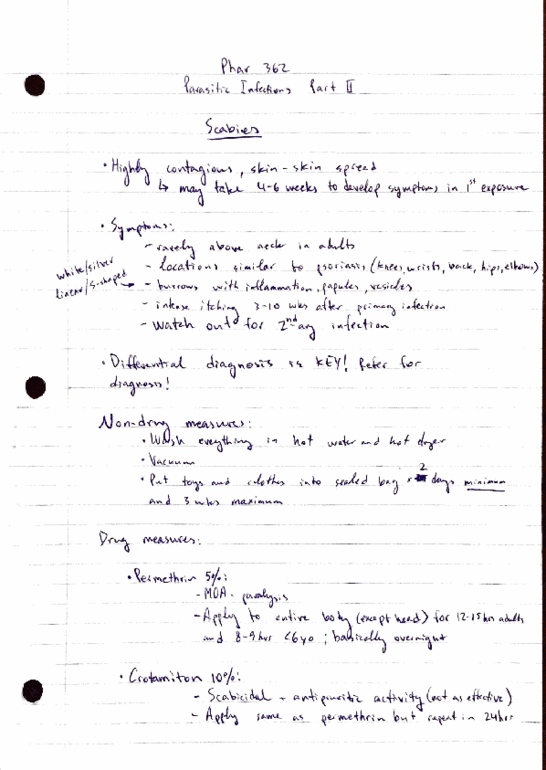 Phar 362
Parasitic Infections Part II
Scabies
• Highly contagious, skin-skin spread
↳ may take 4-6 weeks to develop symptoms in 1st exposure
• Symptoms:
- rarely above neck in adults
- locations similar to psoriasis (knees, wrists, back, hips, elbows)
white/silver
linear/S-shaped → - burrows with inflammation, papules, vesicles
- intense itching 3-10 wks after primary infection
- Watch out for 2ndary infection
• Differential diagnosis is KEY! Refer for
diagnosis!
Non-drug measures:
• Wash everything in hot water and hot dryer
• Vacuum
• Put toys and clothes into sealed bag x 2 days minimum
and 3 wks maximum
Drug measures:
• Permethrin 5%:
- MOA - paralysis
- Apply to entire body (except head) for 12-15 hrs adults
and 8-9 hrs <6yo ; basically overnight
• Crotamiton 10%:
- Scabicidal + antipruritic activity (not as effective)
- Apply same as permethrin but repeat in 24hrs